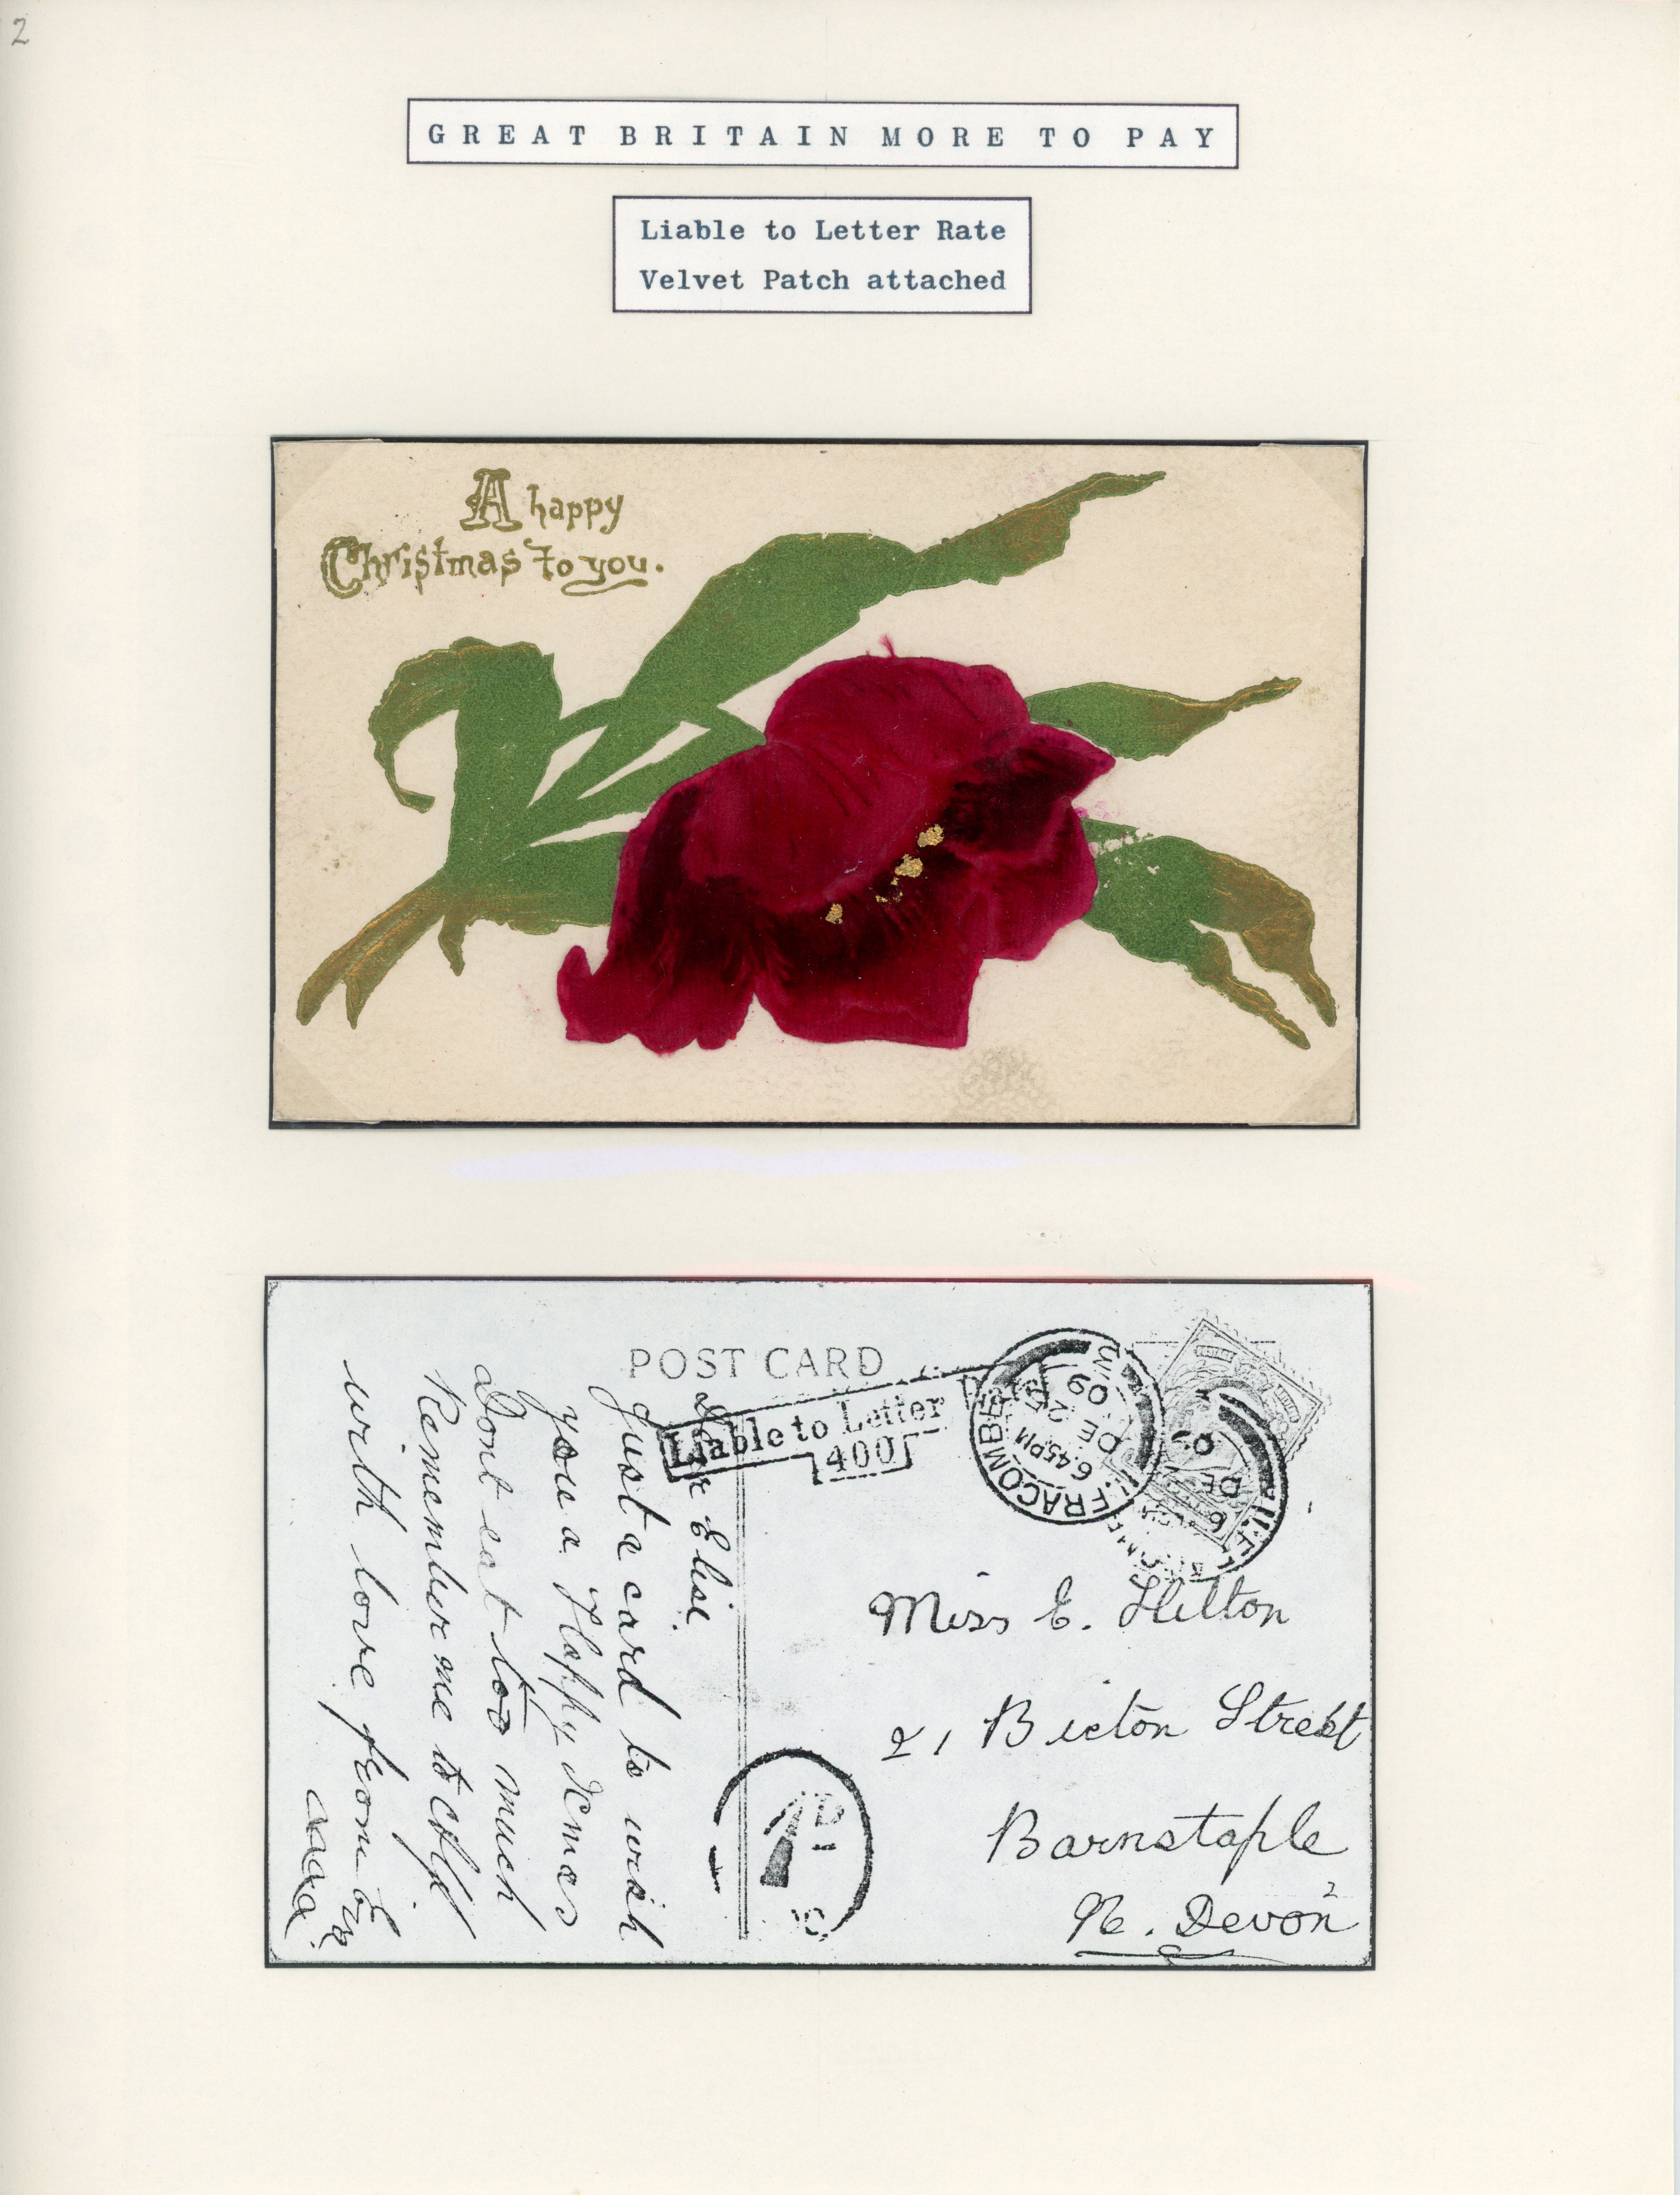 2
GREAT BRITAIN MORE TO PAY
Liable to Letter Rate
Velvet Patch attached
A happy
Christmas to you.
POST CARD
Liable to Letter
400
ILFRACOMBE
6.45PM
DE 25
09
DE
Miss E. Hilton
21 Bicton Street
Barnstaple
N. Devon
Dear Elsie.
Just a card to wish
you a Happy Xmas
Dont eat too much
Remember me to
with love from